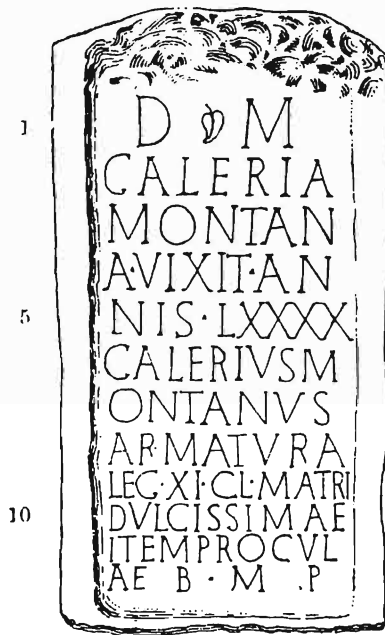 D M
1
CALERIA
MONTAN
A·VIXIT·AN
5
NIS·LXXXX
CALERIVSM
ONTANVS
ARMATVRA
LEG·XI·CL·MATRI
10
DVLCISSIMAE
ITEMPROCVL
AE B · M . P